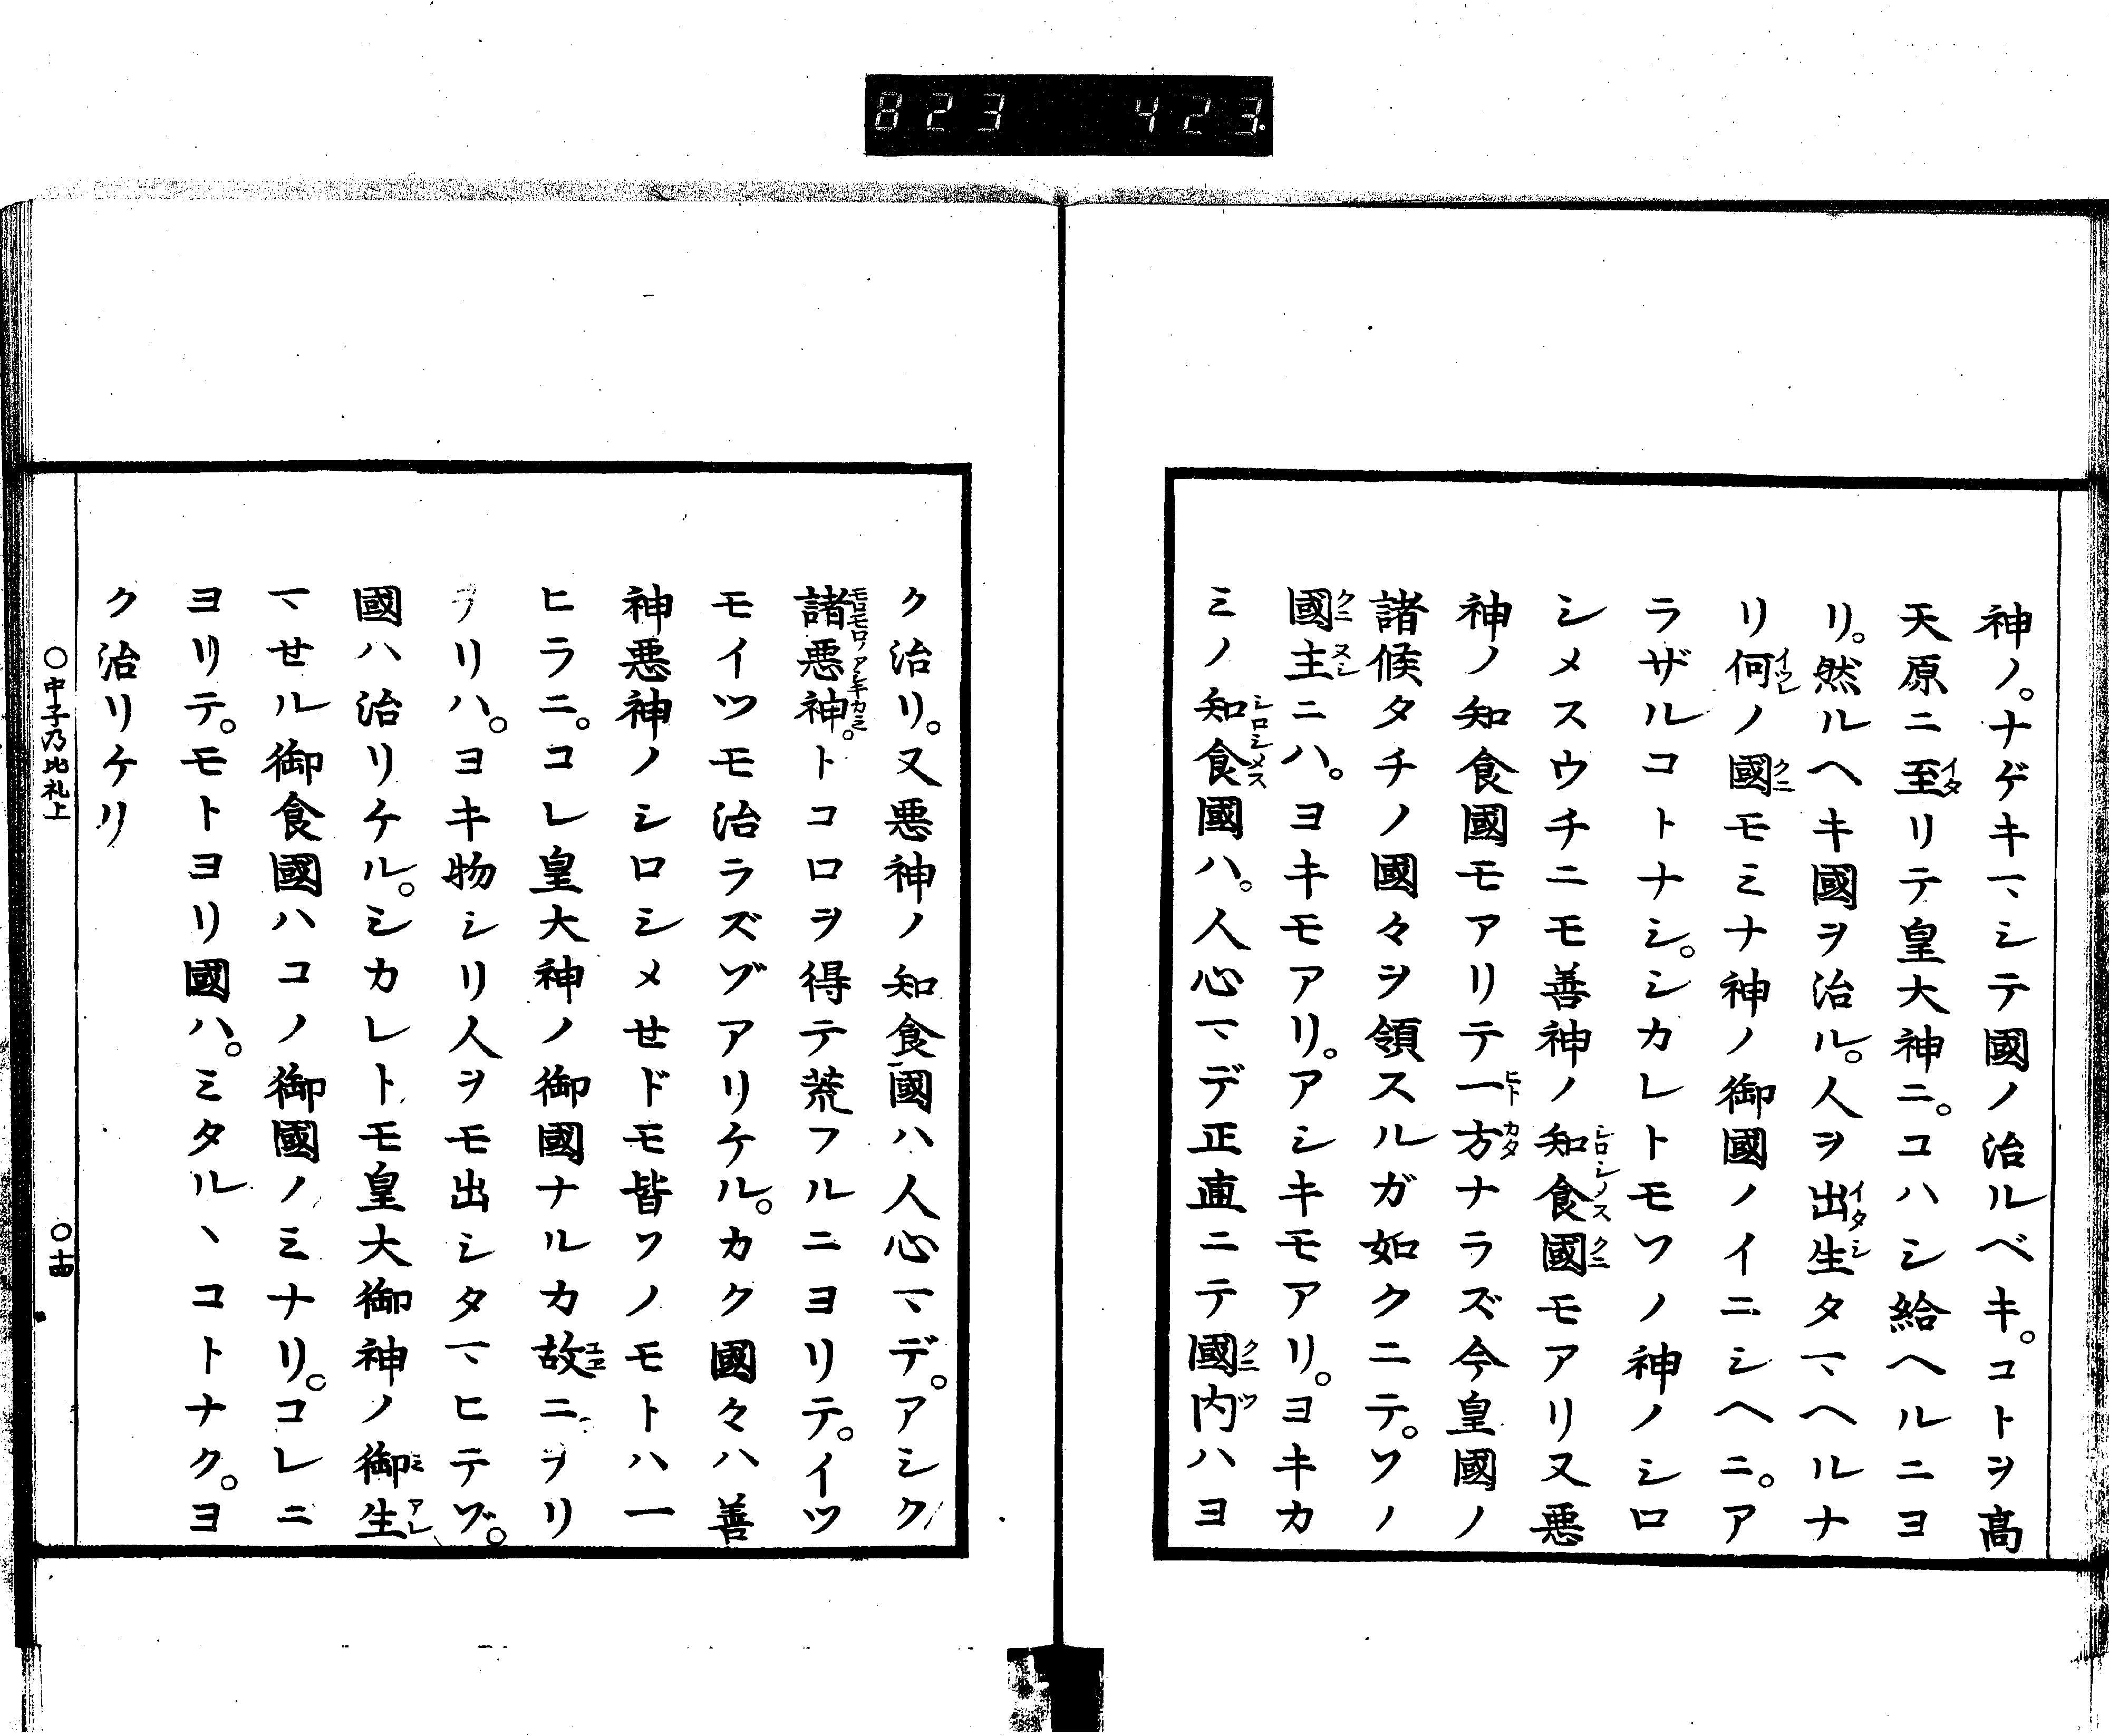 823 423.
神ノ。ナゲキマシテ國ノ治ルベキ。コトヲ高
天原ニ至リテ皇大神ニ。コハシ給ヘルニヨ
リ。然ルヘキ國ヲ治ル。人ヲ出生タマヘルナ
リ何ノ國モミナ神ノ御國ノイニシヘニ。ア
ラザルコトナシ。シカレトモソノ神ノシロ
シメスウチニモ善神ノ知食國モアリ又悪
神ノ知食國モアリテ一方ナラズ今皇國ノ
諸候タチノ國々ヲ領スルガ如クニテ。ソノ
國主ニハ。ヨキモアリ。アシキモアリ。ヨキカ
ミノ知食國ハ。人心マデ正直ニテ國内ハヨ
ク治リ。又悪神ノ知食國ハ人心マデ。アシク
諸悪神。トコロヲ得テ荒フルニヨリテ。イツ
モイツモ治ラズゾアリケル。カク國々ハ善
神悪神ノシロシメせドモ皆ソノモトハ一
ヒラニ。コレ皇大神ノ御國ナルカ故ニヲリ
ヲリハ。ヨキ物シリ人ヲモ出シタマヒテゾ。
國ハ治リケル。シカレトモ皇大御神ノ御生
マせル御食國ハコノ御國ノミナリ。コレニ
ヨリテ。モトヨリ國ハ。ミタルヽコトナク。ヨ
ク治リケリ
○中子乃比礼上 ○十四